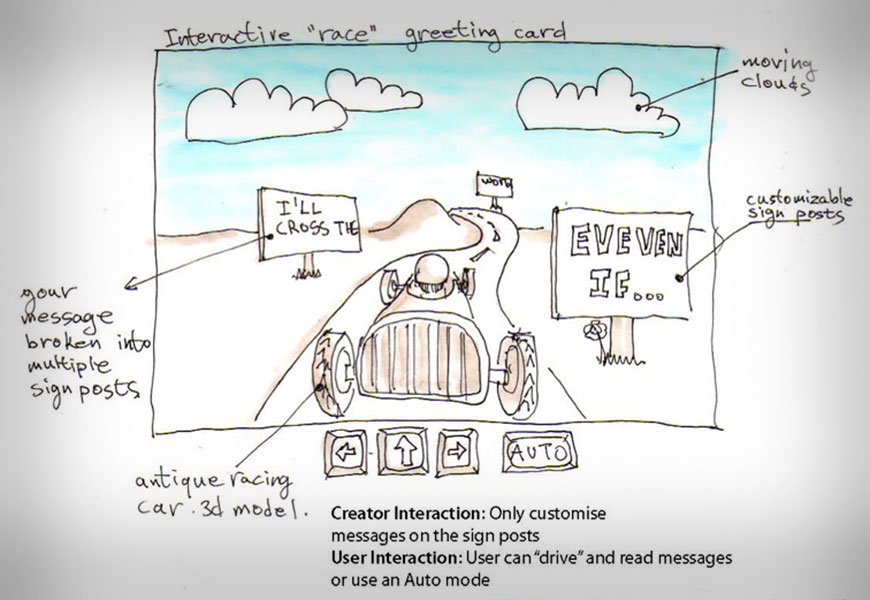 Interactive "race" greeting card
moving
clouds
I'LL
CROSS THE
customizable
sign posts
EVEVEN
IF...
your
message
broken into
multiple
sign posts
AUTO
antique racing
car. 3d model.
Creator Interaction: Only customise
messages on the sign posts
User Interaction: User can “drive” and read messages
or use an Auto mode